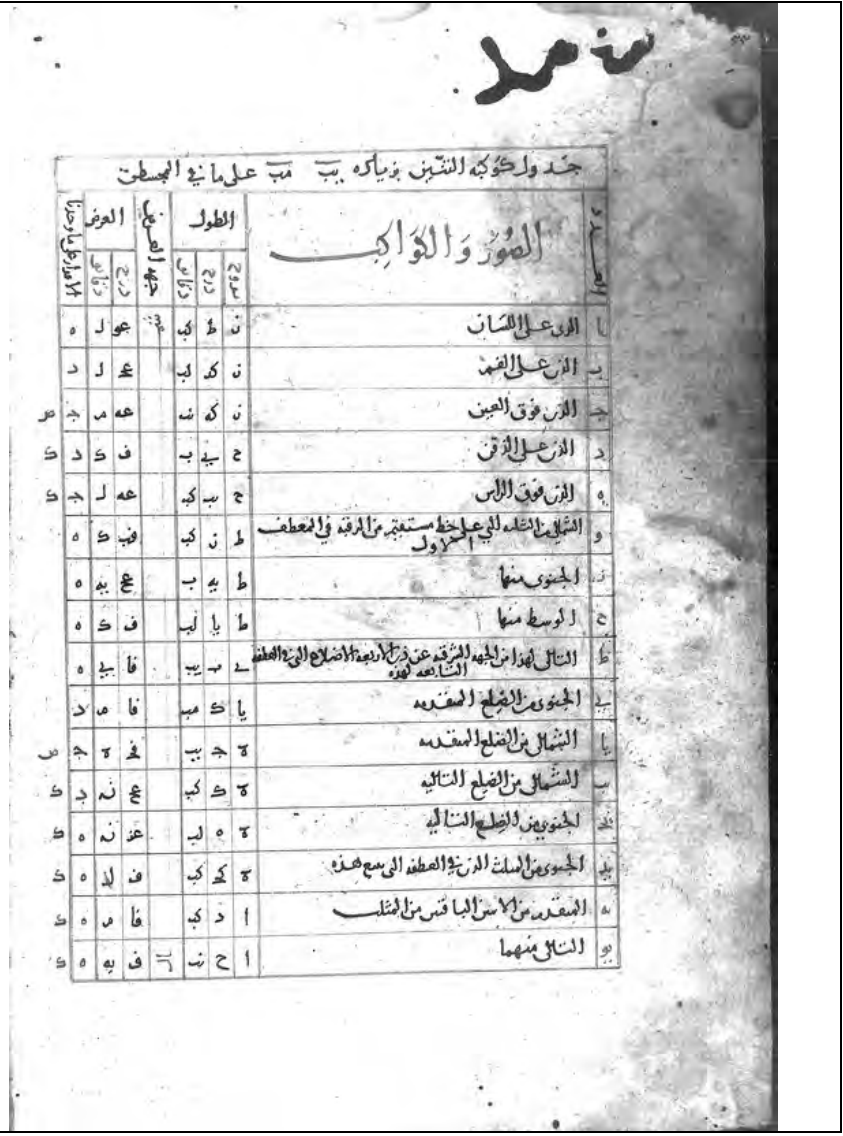 جدول كوكبة التنين بزيادة يب مب على ما في المجسطى
العدد الصور والكواكب الطول جهة العرض العرض الاقدار على ما وجدنا
بروج درج دقائق درج دقائق
ا الذى على اللسان ز ط كب عو ل ه
ب الذى على الفم ز كد لب عح ل د
ج الذى فوق العين ز كه عه م ج ص
د الذى على الذقن ح يب ف ك د ك
ه الذى فوق الراس ح كب عه ل ج ك
و الشمالى من الثلثة التي على خط مستقيم من الرقبة في المعطف
الاول ط ز كب فب ك ه
ز الجنوبى منها ط يه ب عح يه ه
ح الوسط منها ط يا لب ف ك ه
ط التالى لهذا من الجهة الشرقية عن ذى الاربعة الاضلاع الذى في العطفة
التابعة لهذه يب فا ي ه
ي الجنوبى من الضلع المتقدمة يا ك مب فا م د
يا الشمالى من الضلع المتقدمة ج يب فج ج ص
يب الشمالى من الضلع التالية ك كب عح ن د ك
يج الجنوبى من الضلع التالية ه لب عز ن ه ك
يد الجنوبى من المثلث الذى في العطفة التى تتبع هذه كب ف ه ك
يه المتقدم من الاثنين الباقيين من المثلث ا د كب فا م ه ك
يو التالى منهما ا ح ف يه ه ك